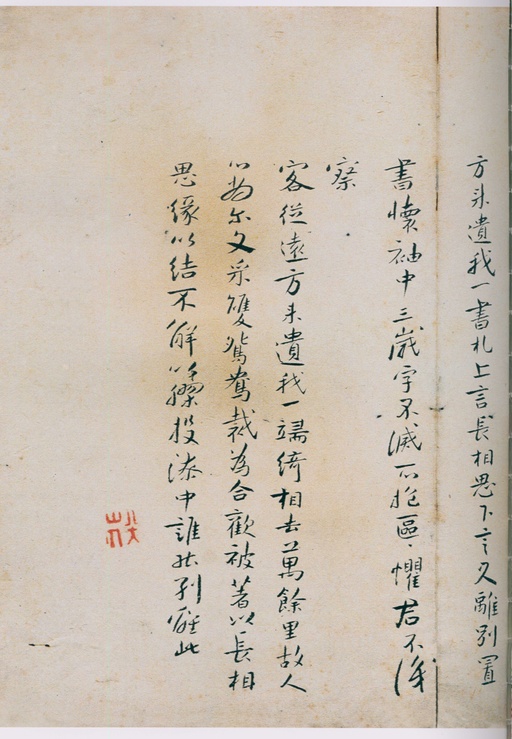 方来遺我一書札上言長相思下言久離別置
書懷袖中三歲字不滅一心抱區〻懼君不識
察
客從遠方来遺我一端綺相去萬餘里故人
心尚尔文彩雙鴛鴦裁為合歡被著以長相
思緣以結不解以膠投漆中誰能別離此
八大山人